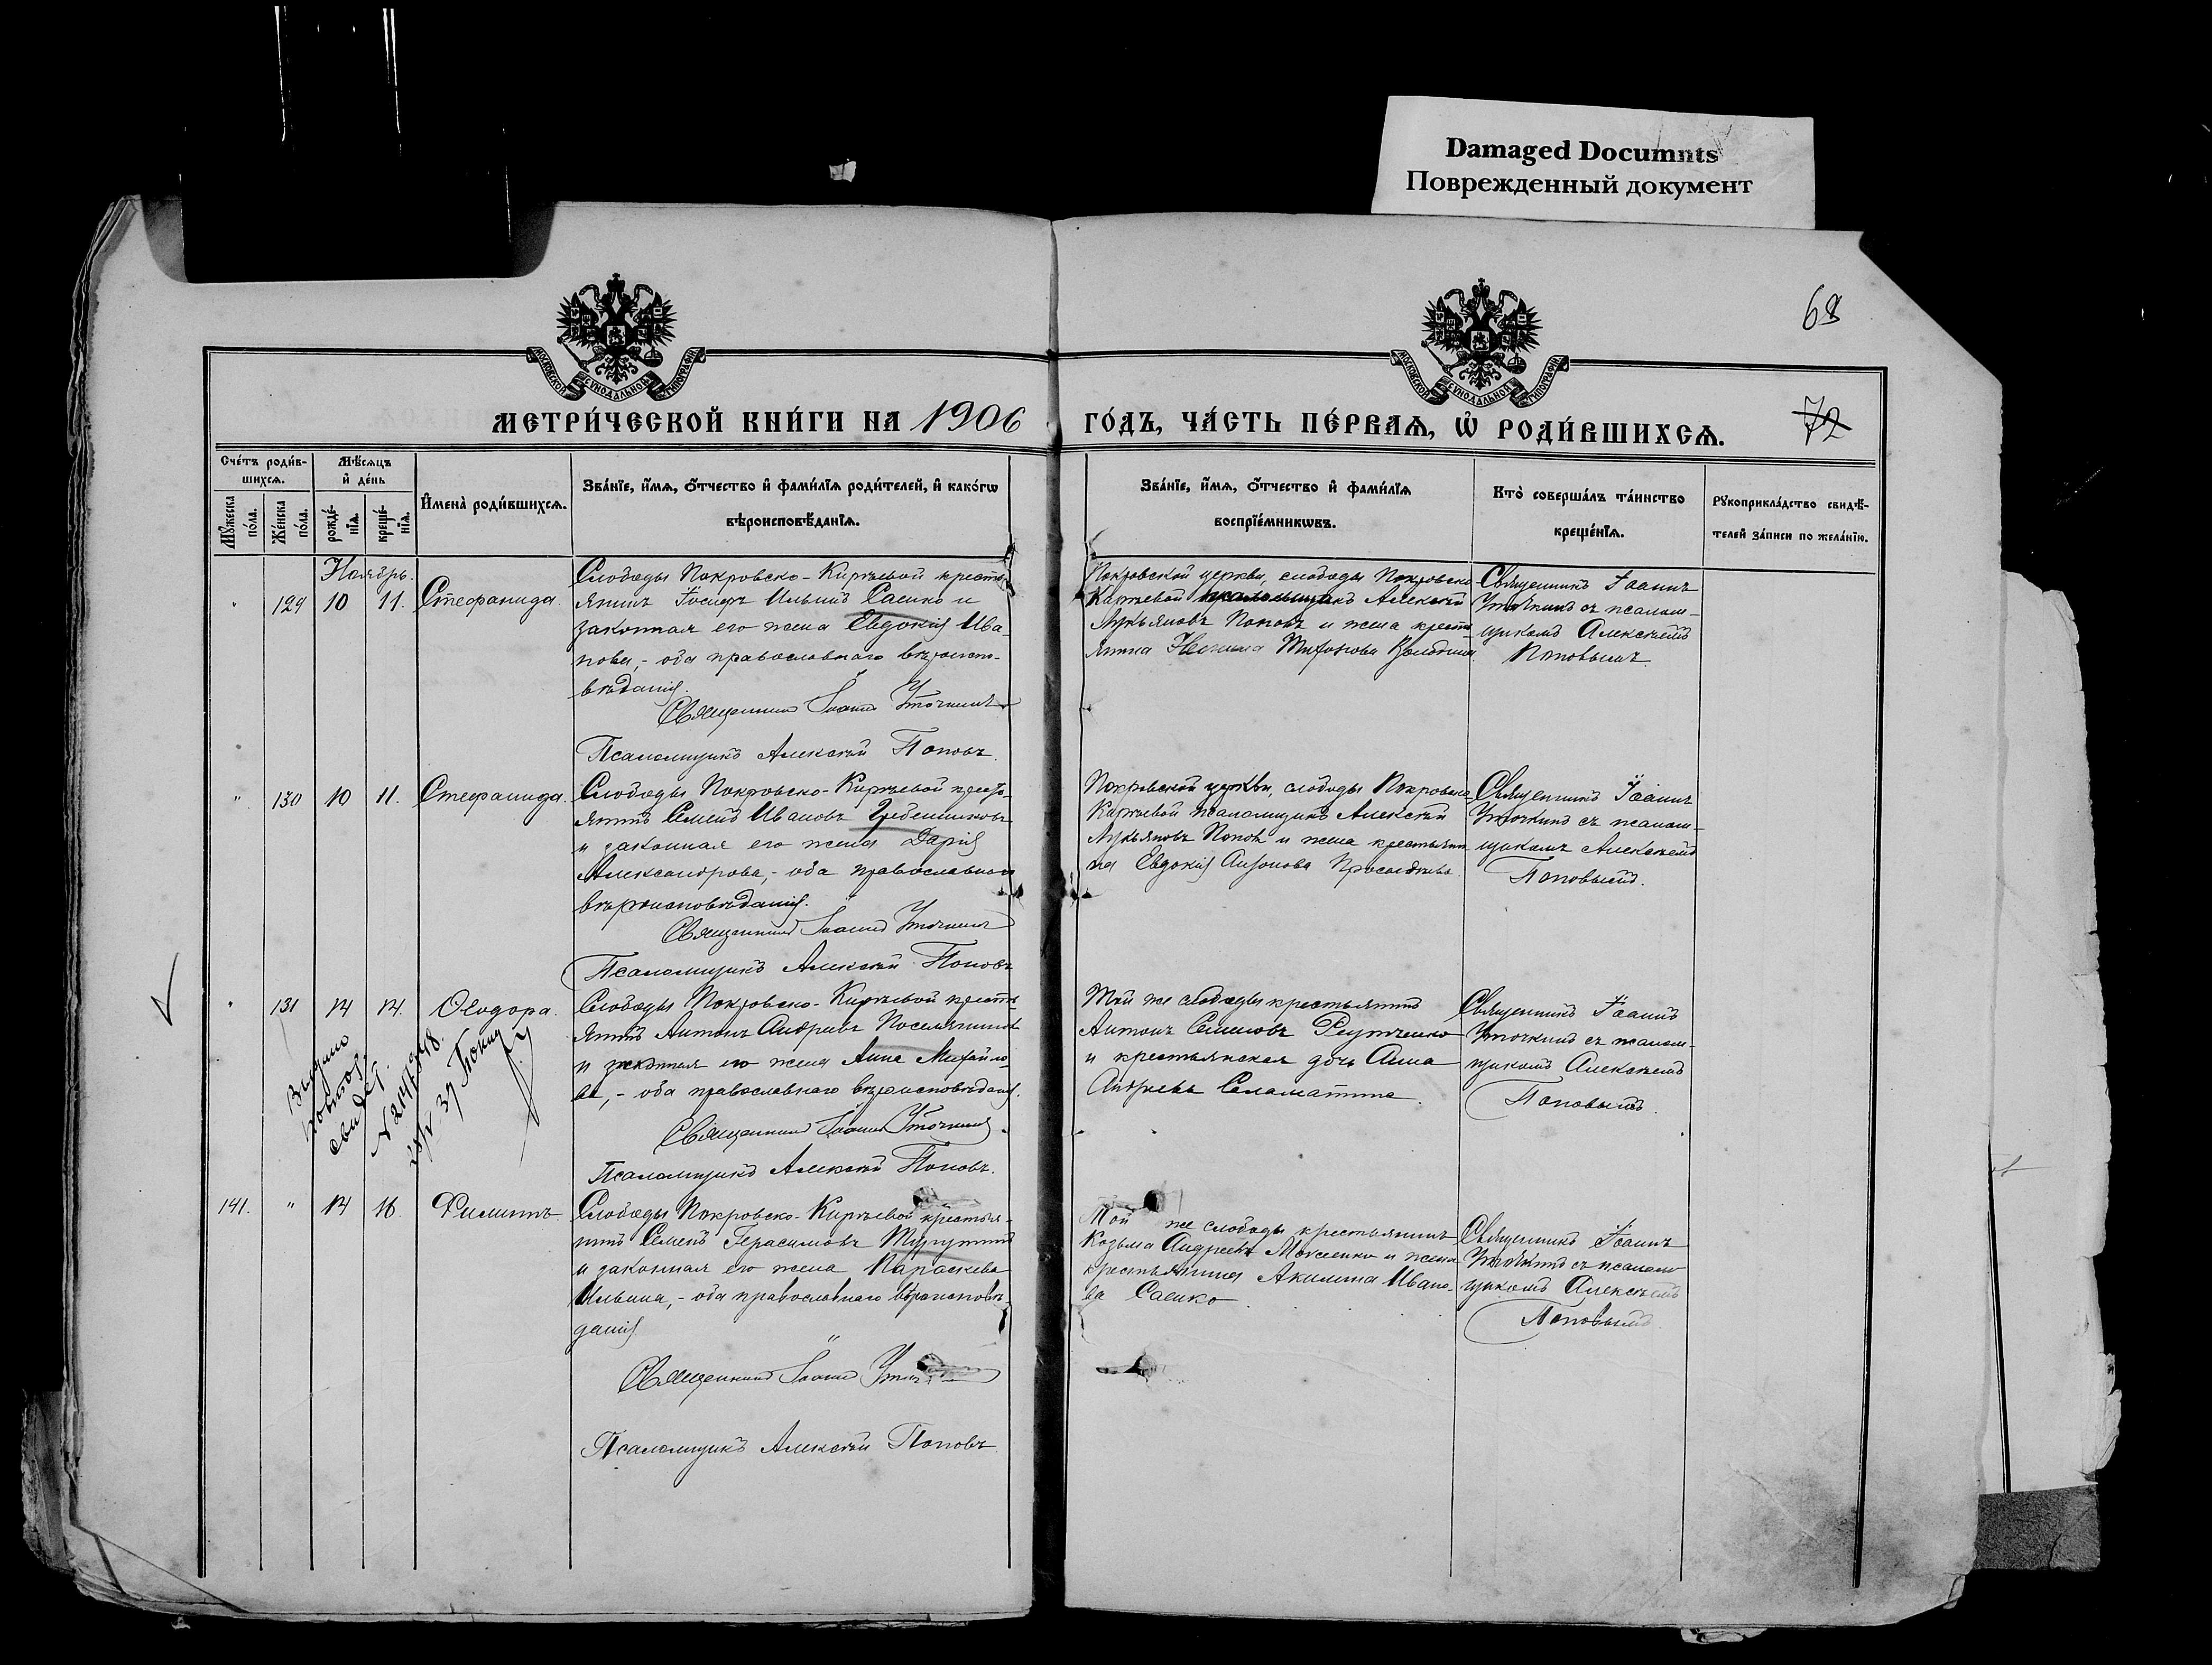 Damaged Documnts
Поврежденный документ
68
72
МОСКОВСКОЙ СѴНОДАЛЬНОЙ ТИПОГРАФІИ
МОСКОВСКОЙ СѴНОДАЛЬНОЙ ТИПОГРАФІИ
МЕТРИ́ЧЕСКОЙ КНИ́ГИ НА 1906
ГО́ДЪ, ЧА́СТЬ ПЕ́РВАѦ, Ѡ҆ РОДИ́ВШИХСѦ.
Сче́тъ роди́в-
шихсѧ.
Мꙋ́жеска
по́ла.
Же́нска
по́ла.
Мѣ́сѧцъ
и҆ де́нь
рожде́-
нїѧ.
креще́-
нїѧ.
И҆мена̀ роди́вшихсѧ.
Зва́нїе, и҆́мѧ, ѻ҆́тчество и҆ фами́лїѧ роди́телей, и҆ како́гѡ
вѣроисповѣ́данїѧ.
Зва́нїе, и҆́мѧ, ѻ҆́тчество и҆ фами́лїѧ
воспрїе́мникѡвъ.
Кто̀ соверша́лъ та́инство
креще́нїѧ.
Рꙋкоприкла́дство свидѣ́-
телей за́писи по жела́нїю.
Ноябрь.
" 129 10 11. Стефанида.
Слободы Покровско-Киреевой кресть-
янинъ Іосифъ Ильинъ Саенко и
законная его жена Евдокія Ива-
нова, - оба православнаго вѣроиспо-
вѣданія.
Священникъ Іоаннъ Уточкинъ
Псаломщикъ Алексѣй Поповъ.
Покровской церкви, слободы Покровско-
Киреевой псаломщикъ Алексѣй
Лукьяновъ Поповъ и жена кресть-
янина Тихонова
Священникъ Іоаннъ
Уточкинъ съ псалом-
щикомъ Алексѣемъ
Поповымъ.
" 130 10 11. Стефанида.
Слободы Покровско-Киреевой кресть-
янинъ Семенъ Ивановъ Гребенниковъ
и законная его жена Дарія
Александрова, - оба православнаго
вѣроисповѣданія.
Священникъ Іоаннъ Уточкинъ
Псаломщикъ Алексѣй Поповъ
Покровской церкви, слободы Покровско-
Киреевой псаломщикъ Алексѣй
Лукьяновъ Поповъ и жена крестьяни-
на Евдокія Антонова
Священникъ Іоаннъ
Уточкинъ съ псалом-
щикомъ Алексѣемъ
Поповымъ.
" 131 14 14. Ѳеодора.
Слободы Покровско-Киреевой кресть-
янинъ Антонъ Андреевъ
и законная его жена Анна Михайло-
ва, - оба православнаго вѣроисповѣданія.
Священникъ Іоаннъ Уточкинъ.
Псаломщикъ Алексѣй Поповъ.
Той же слободы крестьянинъ
Антонъ Семеновъ Реутченко
и крестьянская дочь Анна
Андреева Саламатина.
Священникъ Іоаннъ
Уточкинъ съ псалом-
щикомъ Алексѣемъ
Поповымъ.
Выдано
141. " 14 16. Филиппъ.
Слободы Покровско-Киреевой крестья-
нинъ Семенъ Герасимовъ
и законная его жена Параскева
Ильина, - оба православнаго вѣроисповѣ-
данія
Священникъ Іоаннъ
Псаломщикъ Алексѣй Поповъ
Той же слободы крестьянинъ
Козьма Андреевъ и жена
крестьянина Акилина Ивано-
ва Саенко.
Священникъ Іоаннъ
Уточкинъ съ псалом-
щикомъ Алексѣемъ
Поповымъ.